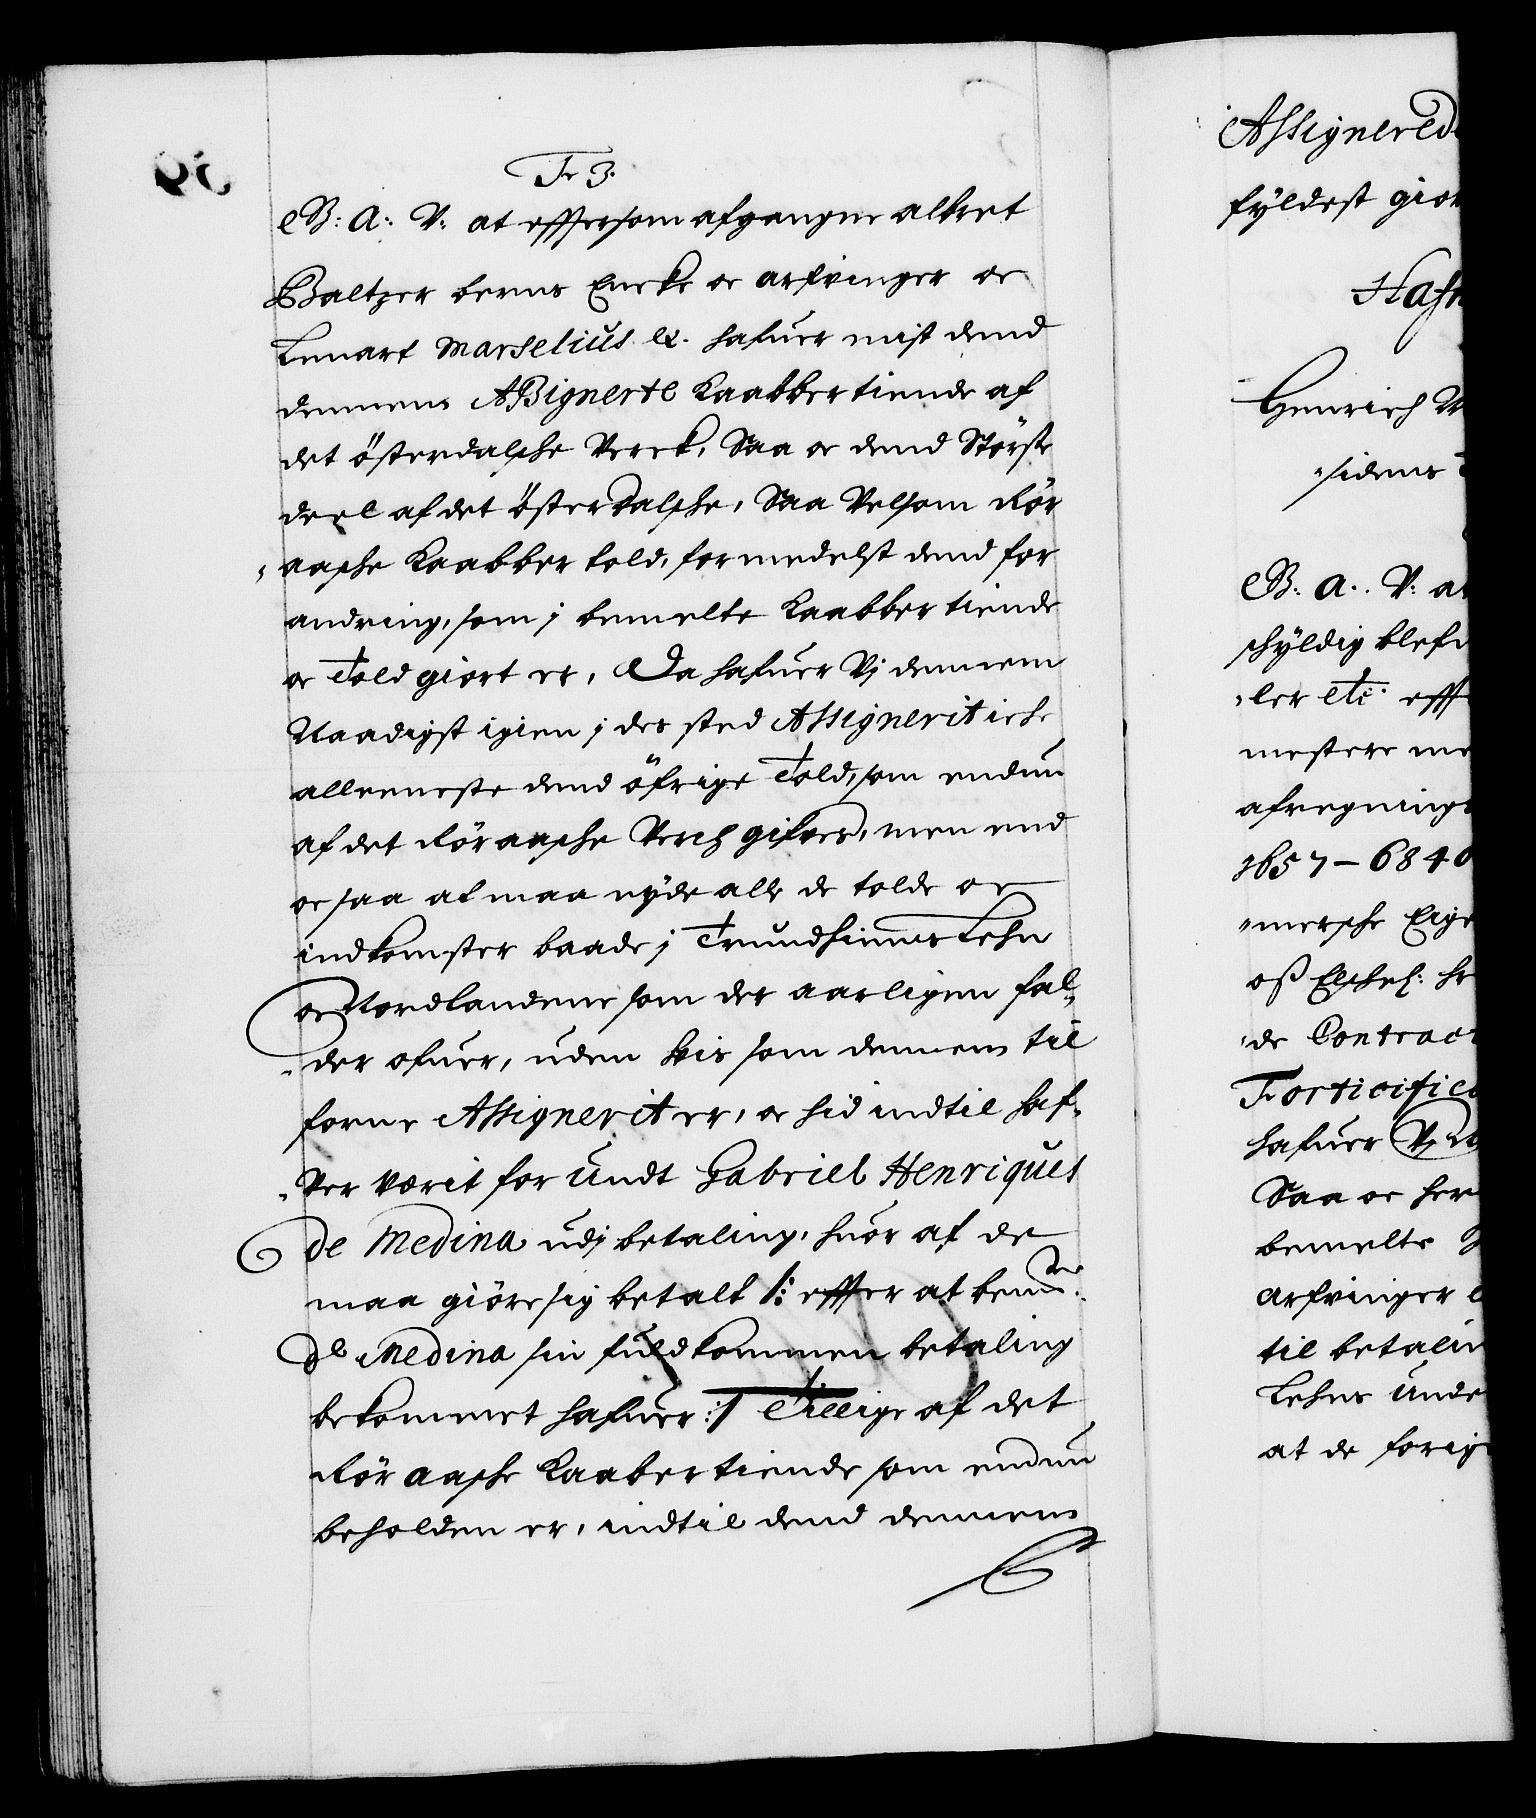 Fr 3.
B: A: V: at effterson afgangne albret
Baltzer berns Encke oc arfvinger oc
Lenart Marselius &. hafuer mist dend
dennem Assignerte Kaabbertiende af
det österdalsche Verck, Saa oc dend Störste
deel af det österdalsche, Saa Velsom Rör
aasche Kaabber told, formedelst dend for
andring, som j bemelte Kaabbertiende
oc Told giort er, Da hafuer Vj dennem
Naadigst igien j des sted Assignerit iche
alleeneste dend öfrige Told, som endnu
af det Röraasche Verch gifves, men end
oc saa at maa nyde alle de tolde oc
indkomster baade j Trundhiems Lehn
oc Nordlandene som der aarligen fal,
der ofuer, uden hvis som dennem til
forne Assignerit er, oc hid indtil haf,
Ver værit for Undt Gabriel Henriques
de Medina udj betaling, huor af de
maa giöre sig betalt /: effter at bem.te
de Medina sin fuldkommen betaling
bekommet hafuer :/ Tillige af det
Rör aasche Kaabertiende som endnu
beholden er, indtil dend dennem
Assignerede
fyldest giør
Hafn
Henrich M
sidens
B: A: V: at
schyldig blef
ler etc efft
mestere me
afregning
1657 – 6840
mersche Eige
oss Elschel: he
de Contract
Fortificat
hafuer Vj
Saa oc her
bemelte
arfvinger
til betalin
Lehns Unde
at de forig